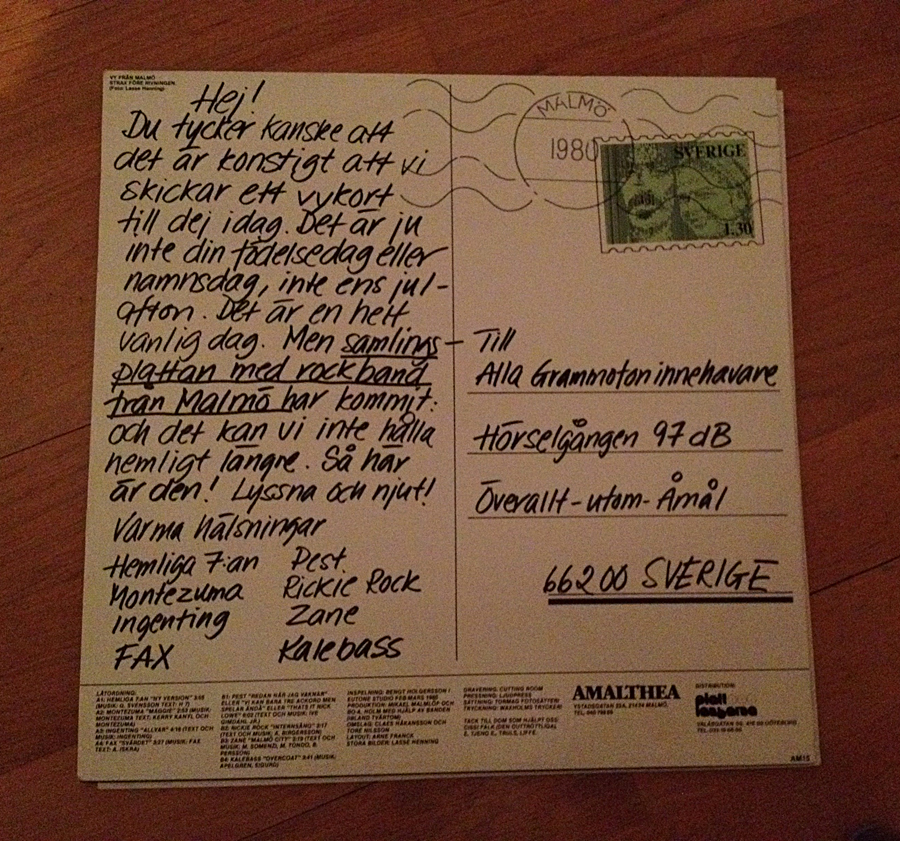 VY FRÅN MALMÖ
STRAX FÖRE RIVNINGEN.
(Foto: Lasse Henning)
Hej!
Du tycker kanske att
det är konstigt att vi
skickar ett vykort
till dej idag. Det är ju
inte din födelsedag eller
namnsdag, inte ens jul-
afton. Det är en helt
vanlig dag. Men samlings-
plattan med rockband
från Malmö har kommit:
och det kan vi inte hålla
hemligt längre. Så här
är den! Lyssna och njut!
Varma hälsningar
Hemliga 7:an Pest
Montezuma Rickie Rock
Ingenting Zane
FAX Kalebass
MALMÖ
1980
SVERIGE
1.30
Till
Alla Grammofoninnehavare
Hörselgången 97 dB
Överallt-utom-Åmål
66200 SVERIGE
LÅTORDNING:
A1: HEMLIGA 7:AN "NY VERSION"
(MUSIK: G. SVENSSON TEXT: H 7)
A2: MONTEZUMA "MAGGIE" (MUSIK:
MONTEZUMA TEXT: KERRY KANYL OCH
MONTEZUMA)
A3: INGENTING "ALLVAR" 4:16 (TEXT OCH
MUSIK: INGENTING)
A4: FAX "SVÄRDET" 5:27 (MUSIK: FAX
TEXT: A. ISKRA)
B1: PEST "REDAN NÄR JAG VAKNAR"
ELLER "VI KAN BARA TRE ACKORD MEN
B3: ZANE "MALMÖ CITY" (TEXT OCH
MUSIK: M. SOMENZI, M. TONDO, B.
PERSSON)
B4: KALEBASS "OVERCOAT" 5:41 (MUSIK:
APELGREN, SIGURD)
INSPELNING: BENGT HOLGERSSON I
(IBLAND TVÄRTOM)
OMSLAG: CLAES HÅKANSSON OCH
TORE NILSSON
LAYOUT: ARNE FRANCK
STORA BILDER: LASSE HENNING
GRAVERING: CUTTING ROOM
PRESSNING: LJUDPRESS
SÄTTNING: TORMAS FOTOSÄTTERI
TACK TILL DOM SOM HJÄLPT OSS:
AMALTHEA
YSTADSGATAN 53A, 214 24 MALMÖ,
DISTRIBUTION:
plattlangarna
AM15